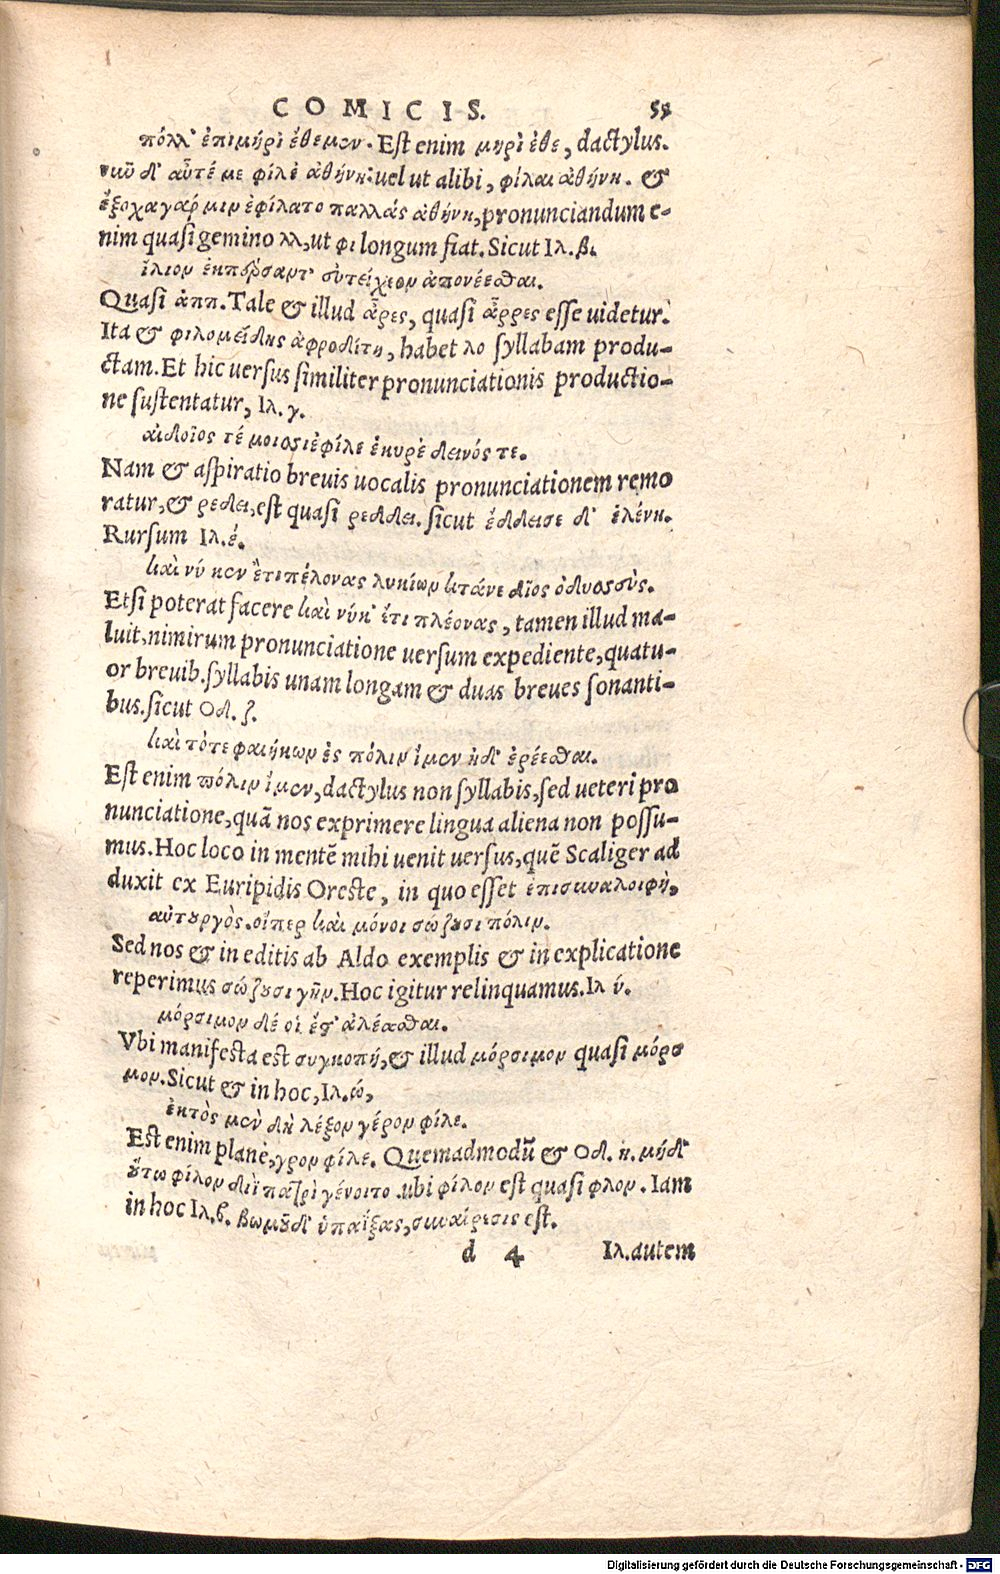 COMICIS. 55
πόλλ' ἐπιμήρὶ ἔθεμεν. Est enim μηρὶ ἐθε, dactylus.
νῦ δ' αὖτέ με φίλε ἀθήνη: uel ut alibi, φίλαι ἀθήνη. &
ἔξοχα γάρ μιν ἐφίλατο παλλάς ἀθήνη, pronunciandum e-
nim quasi gemino λλ, ut φι longum fiat. Sicut Ιλ. β.
ἴλιον ἐκπέρσαντ' εὐτείχεον ἀπονέεσθαι.
Quasi ἀππ. Tale & illud ἆρες, quasi ἆρρες esse uidetur.
Ita & φιλομείδης ἀφροδίτη, habet λο syllabam produ-
ctam. Et hic uersus similiter pronunciationis productio-
ne sustentatur, Ιλ. γ.
αἰδοῖος τέ μοι ἐσὶ φίλε ἑκυρὲ δεινός τε.
Nam & aspiratio breuis uocalis pronunciationem remo
ratur, & ρεδει, est quasi ρεδδει. sicut ἔδδεισε δ' ἑλένη.
Rursum Ιλ. έ.
καὶ νύ κεν ἔτι πέλονας λυκίων κτάνε δῖος ὀδυοσσὺς.
Etsi poterat facere καὶ νύκ' ἔτι πλέονας, tamen illud ma-
luit, nimirum pronunciatione uersum expediente, quatu-
or breuib. syllabis unam longam & duas breues sonanti-
bus. sicut Οδ. ζ.
καὶ τότε φαιήκων ἐς πόλιν ἴμεν ἠδ' ἐρέεσθαι.
Est enim πόλιν ἴμεν, dactylus non syllabis, sed ueteri pro
nunciatione, quā nos exprimere lingua aliena non possu-
mus. Hoc loco in mentē mihi uenit uersus, quē Scaliger ad
duxit ex Euripidis Oreste, in quo esset ἐπισυναλοιφὴ,
αὐτουργὸς. οἵπερ καὶ μόνοι σώζουσι πόλιν.
Sed nos & in editis ab Aldo exemplis & in explicatione
reperimus σώζουσι γῆν. Hoc igitur relinquamus. Ιλ ύ.
μόρσιμον δέ οἱ ἔστ' ἀλέασθαι.
Vbi manifesta est συγκοπή, & illud μόρσιμον quasi μόρσ
μον. Sicut & in hoc, Ιλ. ώ,
ἐκτὸς μὲν δὴ λέξον γέρον φίλε.
Est enim planè, γρον φίλε. Quemadmodū & Οδ. η. μήδ'
οὕτω φίλον διὶ πατρὶ γένοιτο. ubi φίλον est quasi φλον. Iam
in hoc Ιλ. β. βωμοῦ δ' ὑπαΐξας, συναίρεσις est.
d 4 Ιλ. autem
Digitalisierung gefördert durch die Deutsche Forschungsgemeinschaft - DFG